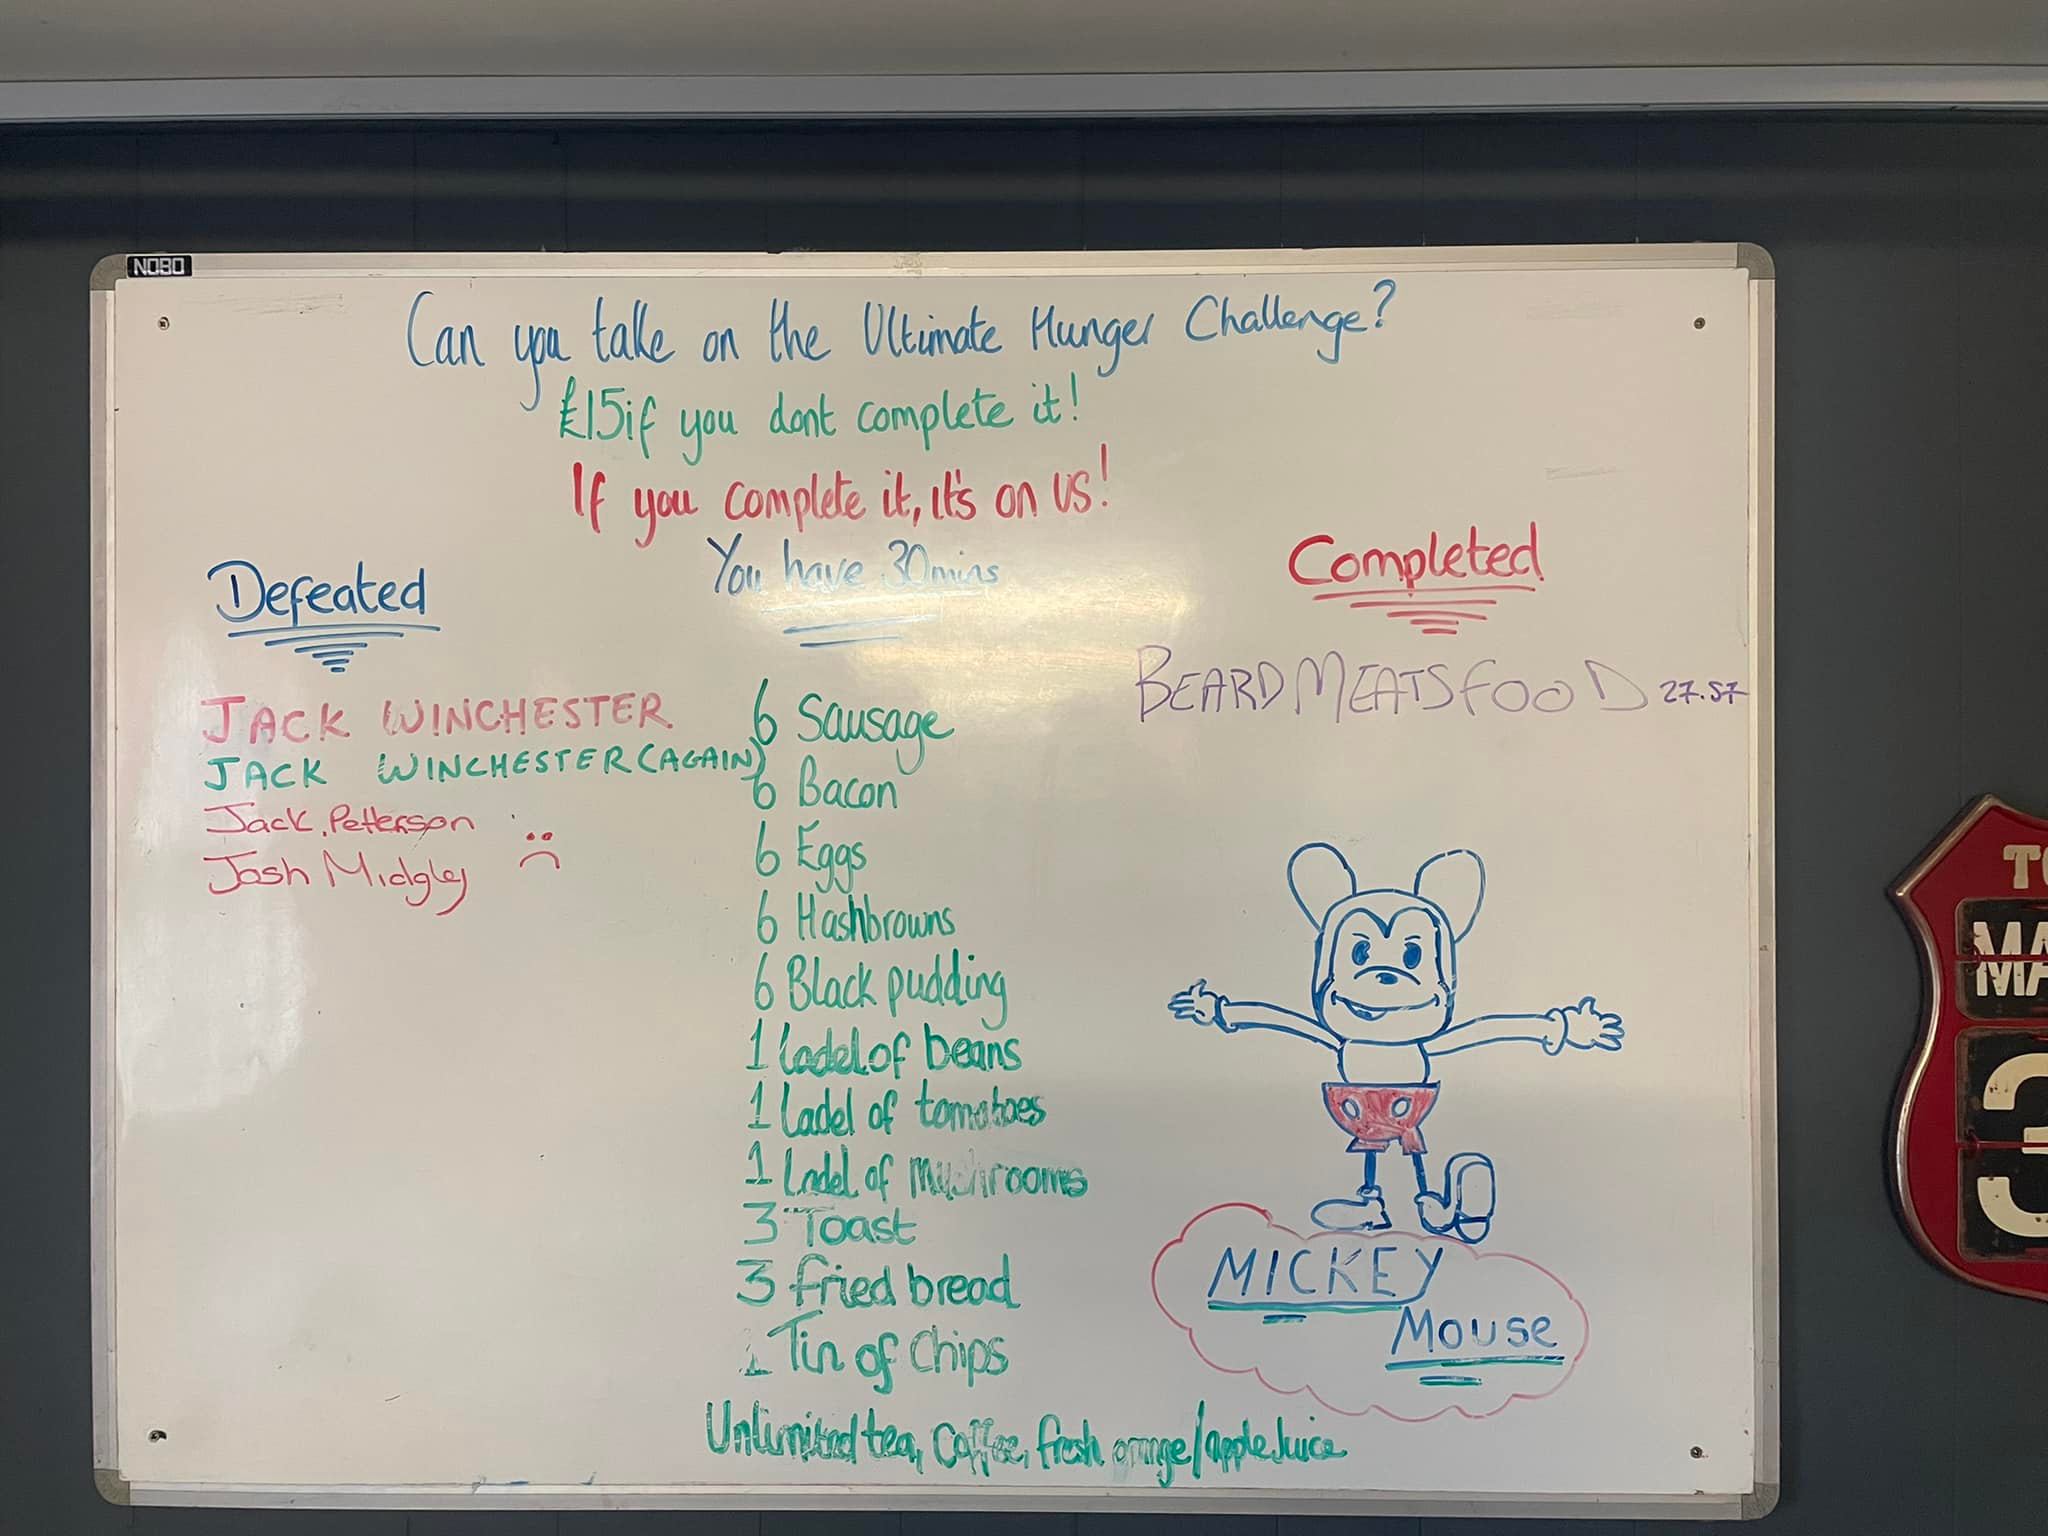 NOBO
Can you take on the Ultimate Hunger Challenge?
£15 if you dont complete it!
If you complete it, it's on us!
You have 30mins
Defeated
JACK WINCHESTER
JACK WINCHESTER (AGAIN)
Jack Petterson
Josh Midgley
6 Sausage
6 Bacon
6 Eggs
6 Hashbrowns
6 Black pudding
1 ladel of beans
1 Ladel of tomatoes
1 Ladel of mushrooms
3 Toast
3 fried bread
1 Tin of Chips
Unlimited tea, Coffee, fresh orange/apple Juice
Completed
BEARDMEATSFOOD 27.57
MICKEY
MOUSE
TO
MA
3